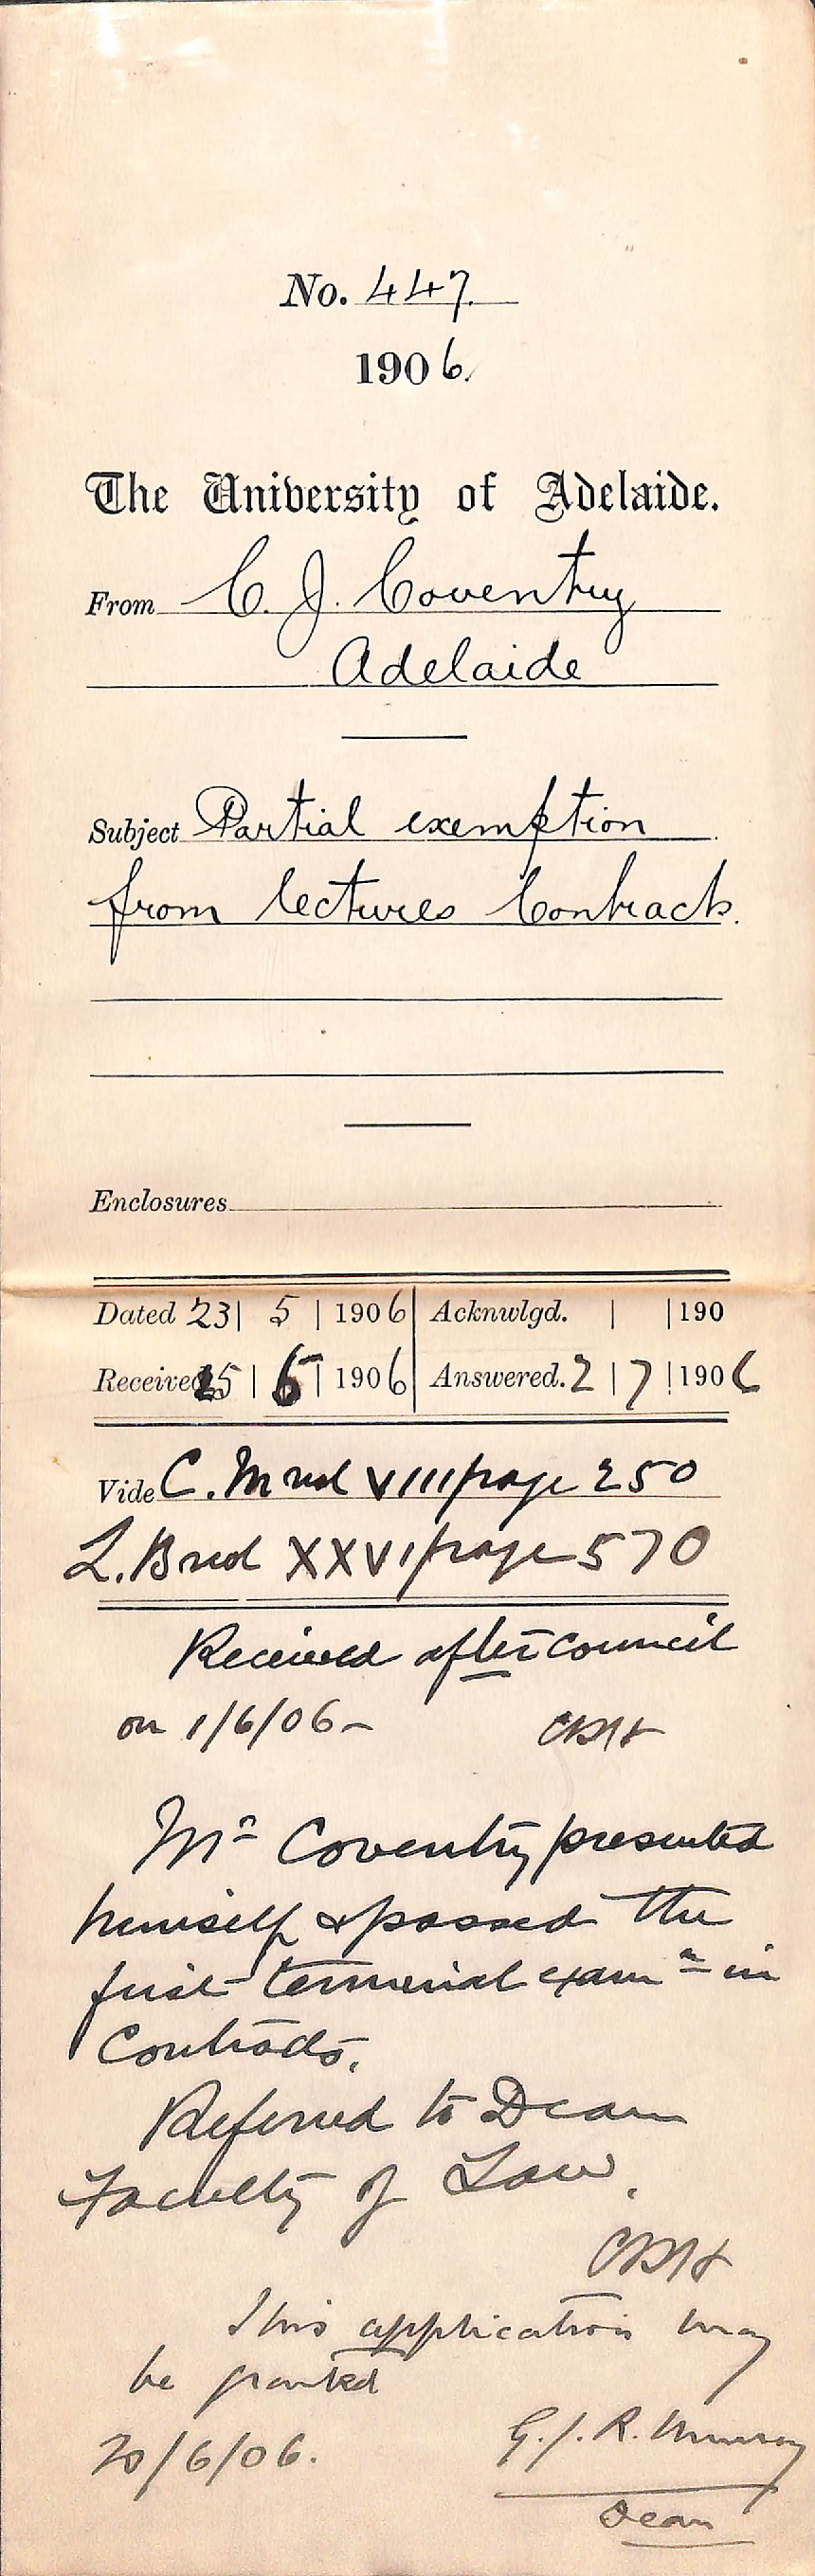 No. 447.
1906.
The University of Adelaide.
From C. J. Coventry
Adelaide
Subject Partial exemption
from lectures Contracts.
Enclosures
Dated 23 | 5 | 1906 | Acknwlgd. | | 190
Received 5 | 6 | 1906 | Answered. 2 | 7 | 1906
Vide C. M vol VIII page 250
L. B vol XXVI page 570
Received after Council
on 1/6/06 - CRH
Mr Coventry presented
himself & passed the
first terminal examn in
Contracts.
Referred to Dean
Faculty of Law.
CRH
This application may
be granted
20/6/06. G. J. R. Murray
Dean